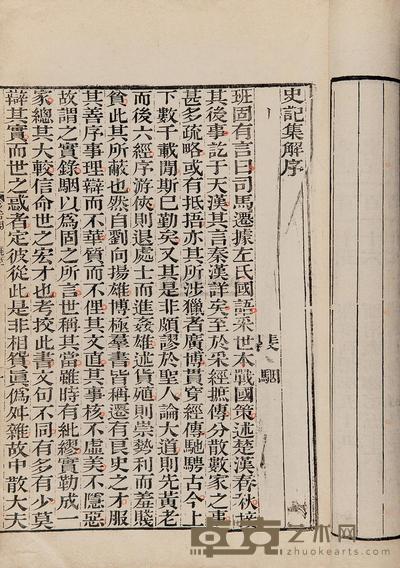 史記集解序
裴駰
班固有言曰司馬遷據左氏國語采世本戰國策述楚漢春秋接
其後事訖于天漢其言秦漢詳矣至於采經摭傳分散數家之事
甚多疏略或有抵捂亦其所涉獵者廣博貫穿經傳馳騁古今上
下數千載閒斯已勤矣又其是非頗謬於聖人論大道則先黃老
而後六經序游俠則退處士而進姦雄述貨殖則崇勢利而羞賤
貧此其所蔽也然自劉向揚雄博極羣書皆稱遷有良史之才服
其善序事理辯而不華質而不俚其文直其事核不虛美不隱惡
故謂之實錄駰以為固之所言世稱其當雖時有紕繆實勒成一
家總其大較信命世之宏才也考挍此書文句不同有多有少莫
辯其實而世之惑者定彼從此是非相貿真偽舛雜故中散大夫
卓克艺术网
zhuokearts.com